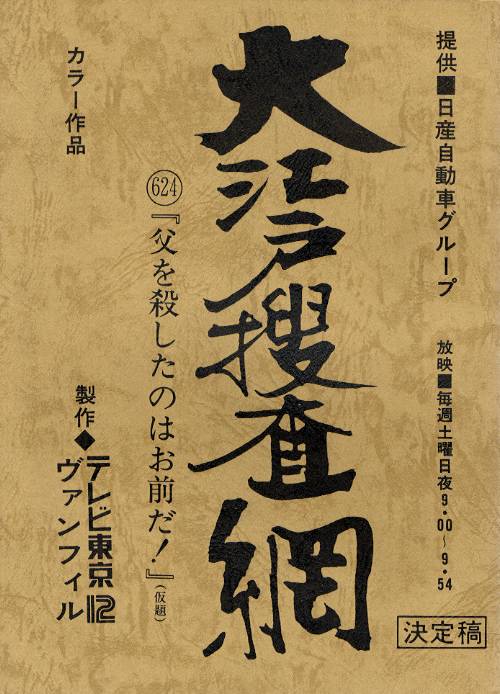 提供■日産自動車グループ
放映■毎週土曜日夜9・00〜9・54
決定稿
大江戸捜査網
624『父を殺したのはお前だ！』(仮題)
カラー作品
製作◆テレビ東京12
ヴァンフィル